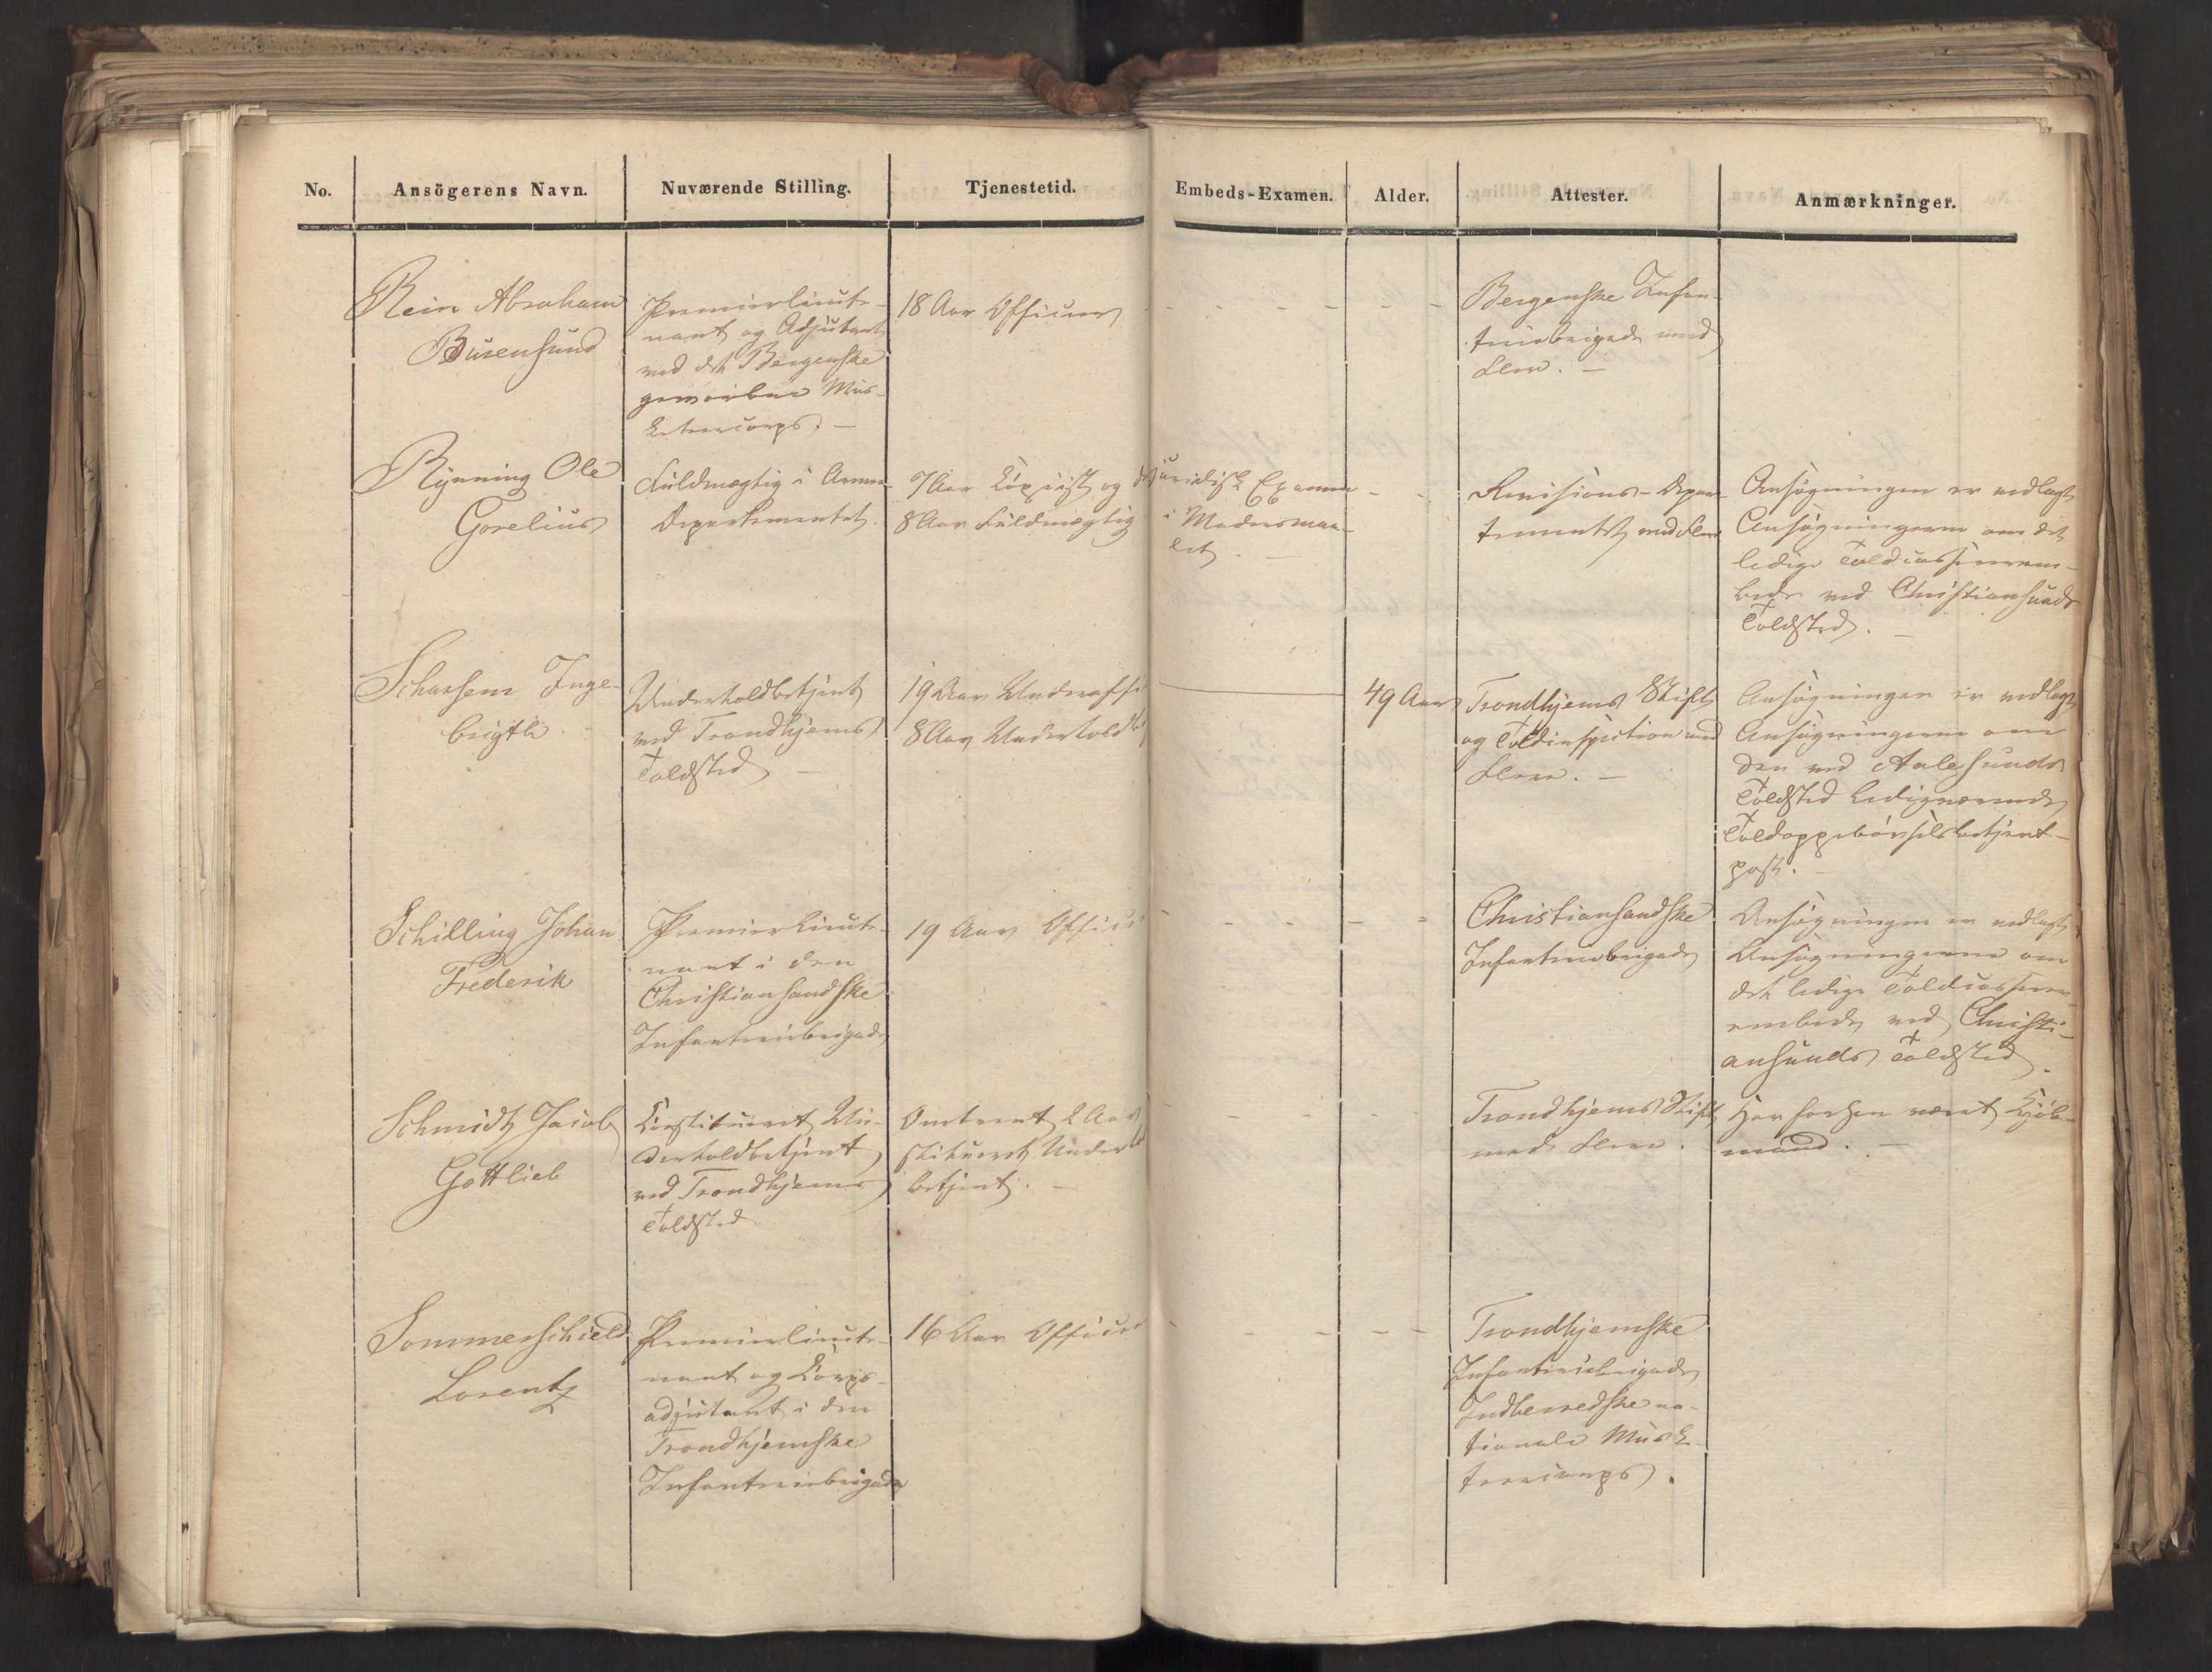 No.
Ansögerens Navn.
Nuværende Stilling.
Tjenestetid.
Embeds-Examen.
Alder.
Attester.
Anmærkninger.
Rein Abraham
Busensund
Premierlieute-
nant og Adjutant
ved det Bergenske
gevorbne Mus-
keteercorps. —
18 Aar Officeer
Bergenske Infan-
teriebrigade med
Flere. —
Rynning Ole
Gorelius
Fuldmægtig i Armee-
Departementet.
7 Aar Copiist og
8 Aar Fuldmægtig
juridisk Examen
i Modersmaa-
let. —
Revisions-Depar-
tementet med Flere
Ansøgningen er vedlagt
Ansøgningerne om det
ledige Toldcasserer em-
bede ved Christiansunds
Toldsted. —
Schassem Inge-
brigth. -
Undertoldbetjent
ved Trondhjems
Toldsted —
19 Aar Underoffi
8 Aar Undertoldb
49 Aar
Trondhjems Stift
og Toldinspection med
Flere. —
Ansøgningen er vedlagt
Ansøgningerne om
den ved Aalesunds
Toldsted ledigværende
Toldoppebørselsbetjent-
post. -
Schilling Johan
Frederik
Premierlieute-
nant i den
Christiansandske
Infanteriebrigade
19 Aar Offici
Christiansandske
Infanteriebrigade
Ansøgningen er vedlagt
Ansøgningerne om
det ledige Toldcasserer
embede ved Christi-
ansunds Toldsted.
Schmidt Jacob
Gottlieb
Constitueret Un-
dertoldbetjent
ved Trondhjems
Toldsted
Omtrent 2 Aar
stitueret Under
betjent. —
Trondhjems Stift
med Flere.
Har forhen været Kjøb-
mand. —
Sommerschield
Lorentz
Premierlieute-
nant og Corps-
adjutant i den
Trondhjemske
Infanteriebrigade
16 Aar Officer
Trondhjemske
Infanteriebrigade
Indherredske na-
tionale Muske-
teercorps.